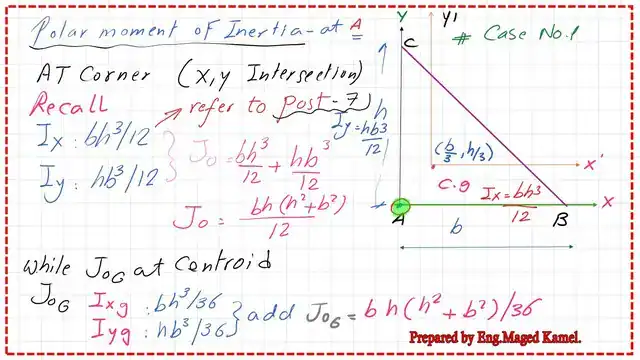 Polar moment of Inertia-at A
AT Corner (X,y Intersection)
Recall
refer to Post-7
Ix : bh³/12
Iy : hb³/12
Jo = bh³/12 + hb³/12
Jo = bh(h²+b²)/12
while JoG at Centroid
JoG Ixg : bh³/36
Iyg : hb³/36
add JoG = bh(h²+b²)/36
Y
y1
# Case No.1
C
h
Iy = hb³/12
(b/3, h/3)
x'
C.g
Ix = bh³/12
X
A
B
b
Prepared by Eng.Maged Kamel.